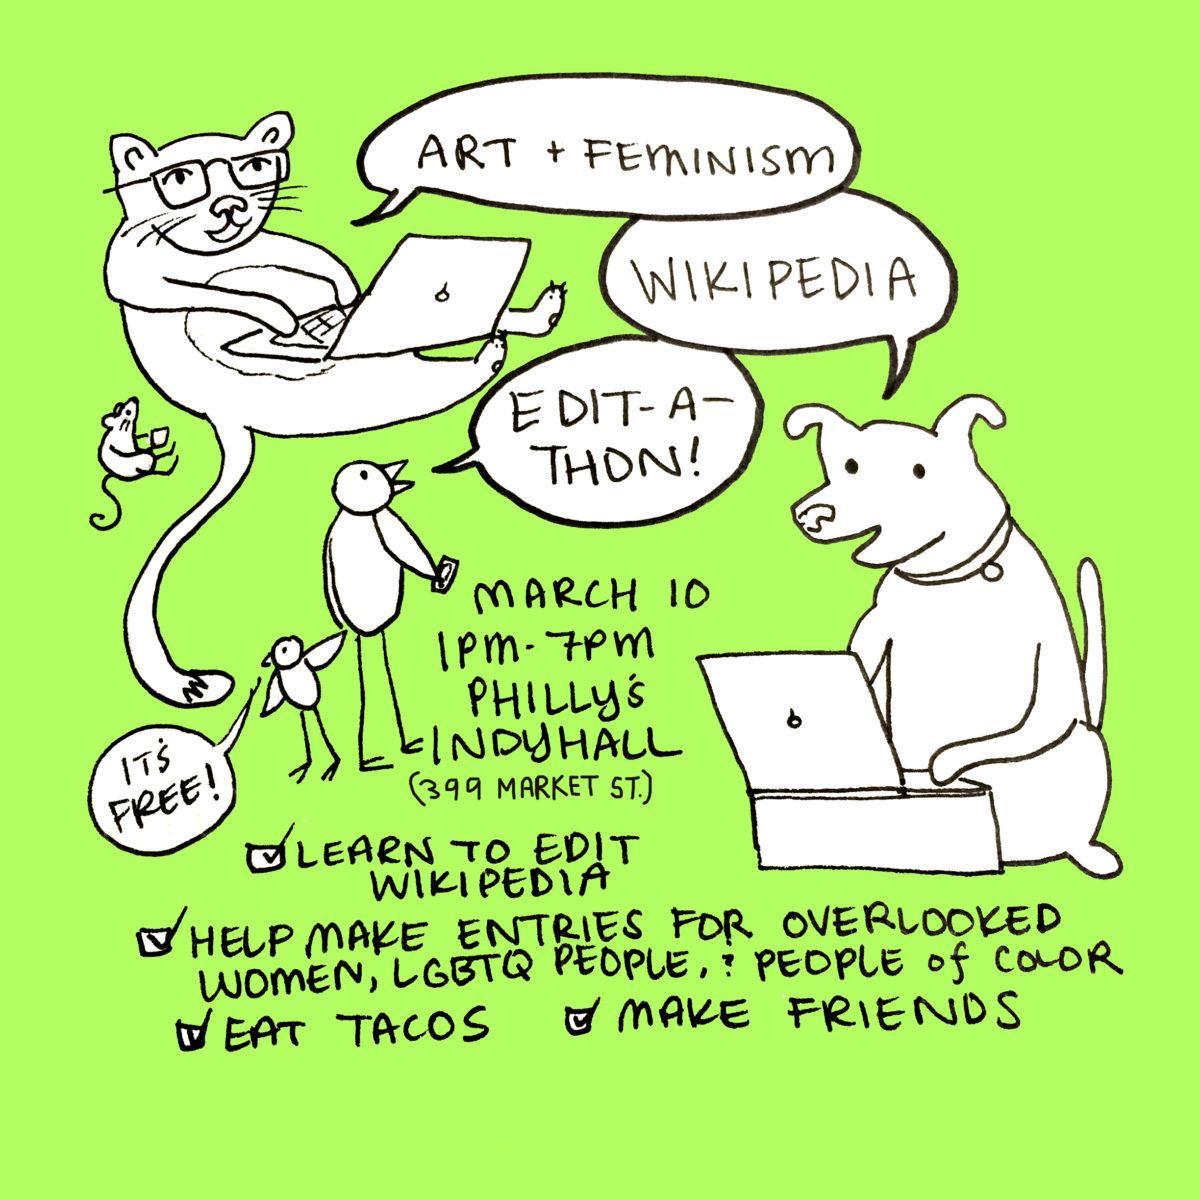 ART + FEMINISM
WIKIPEDIA
EDIT-A-
THON!
MARCH 10
1PM-7PM
PHILLY'S
INDYHALL
(399 MARKET ST.)
IT'S
FREE!
LEARN TO EDIT
WIKIPEDIA
HELP MAKE ENTRIES FOR OVERLOOKED
WOMEN, LGBTQ PEOPLE, & PEOPLE of COLOR
EAT TACOS
MAKE FRIENDS